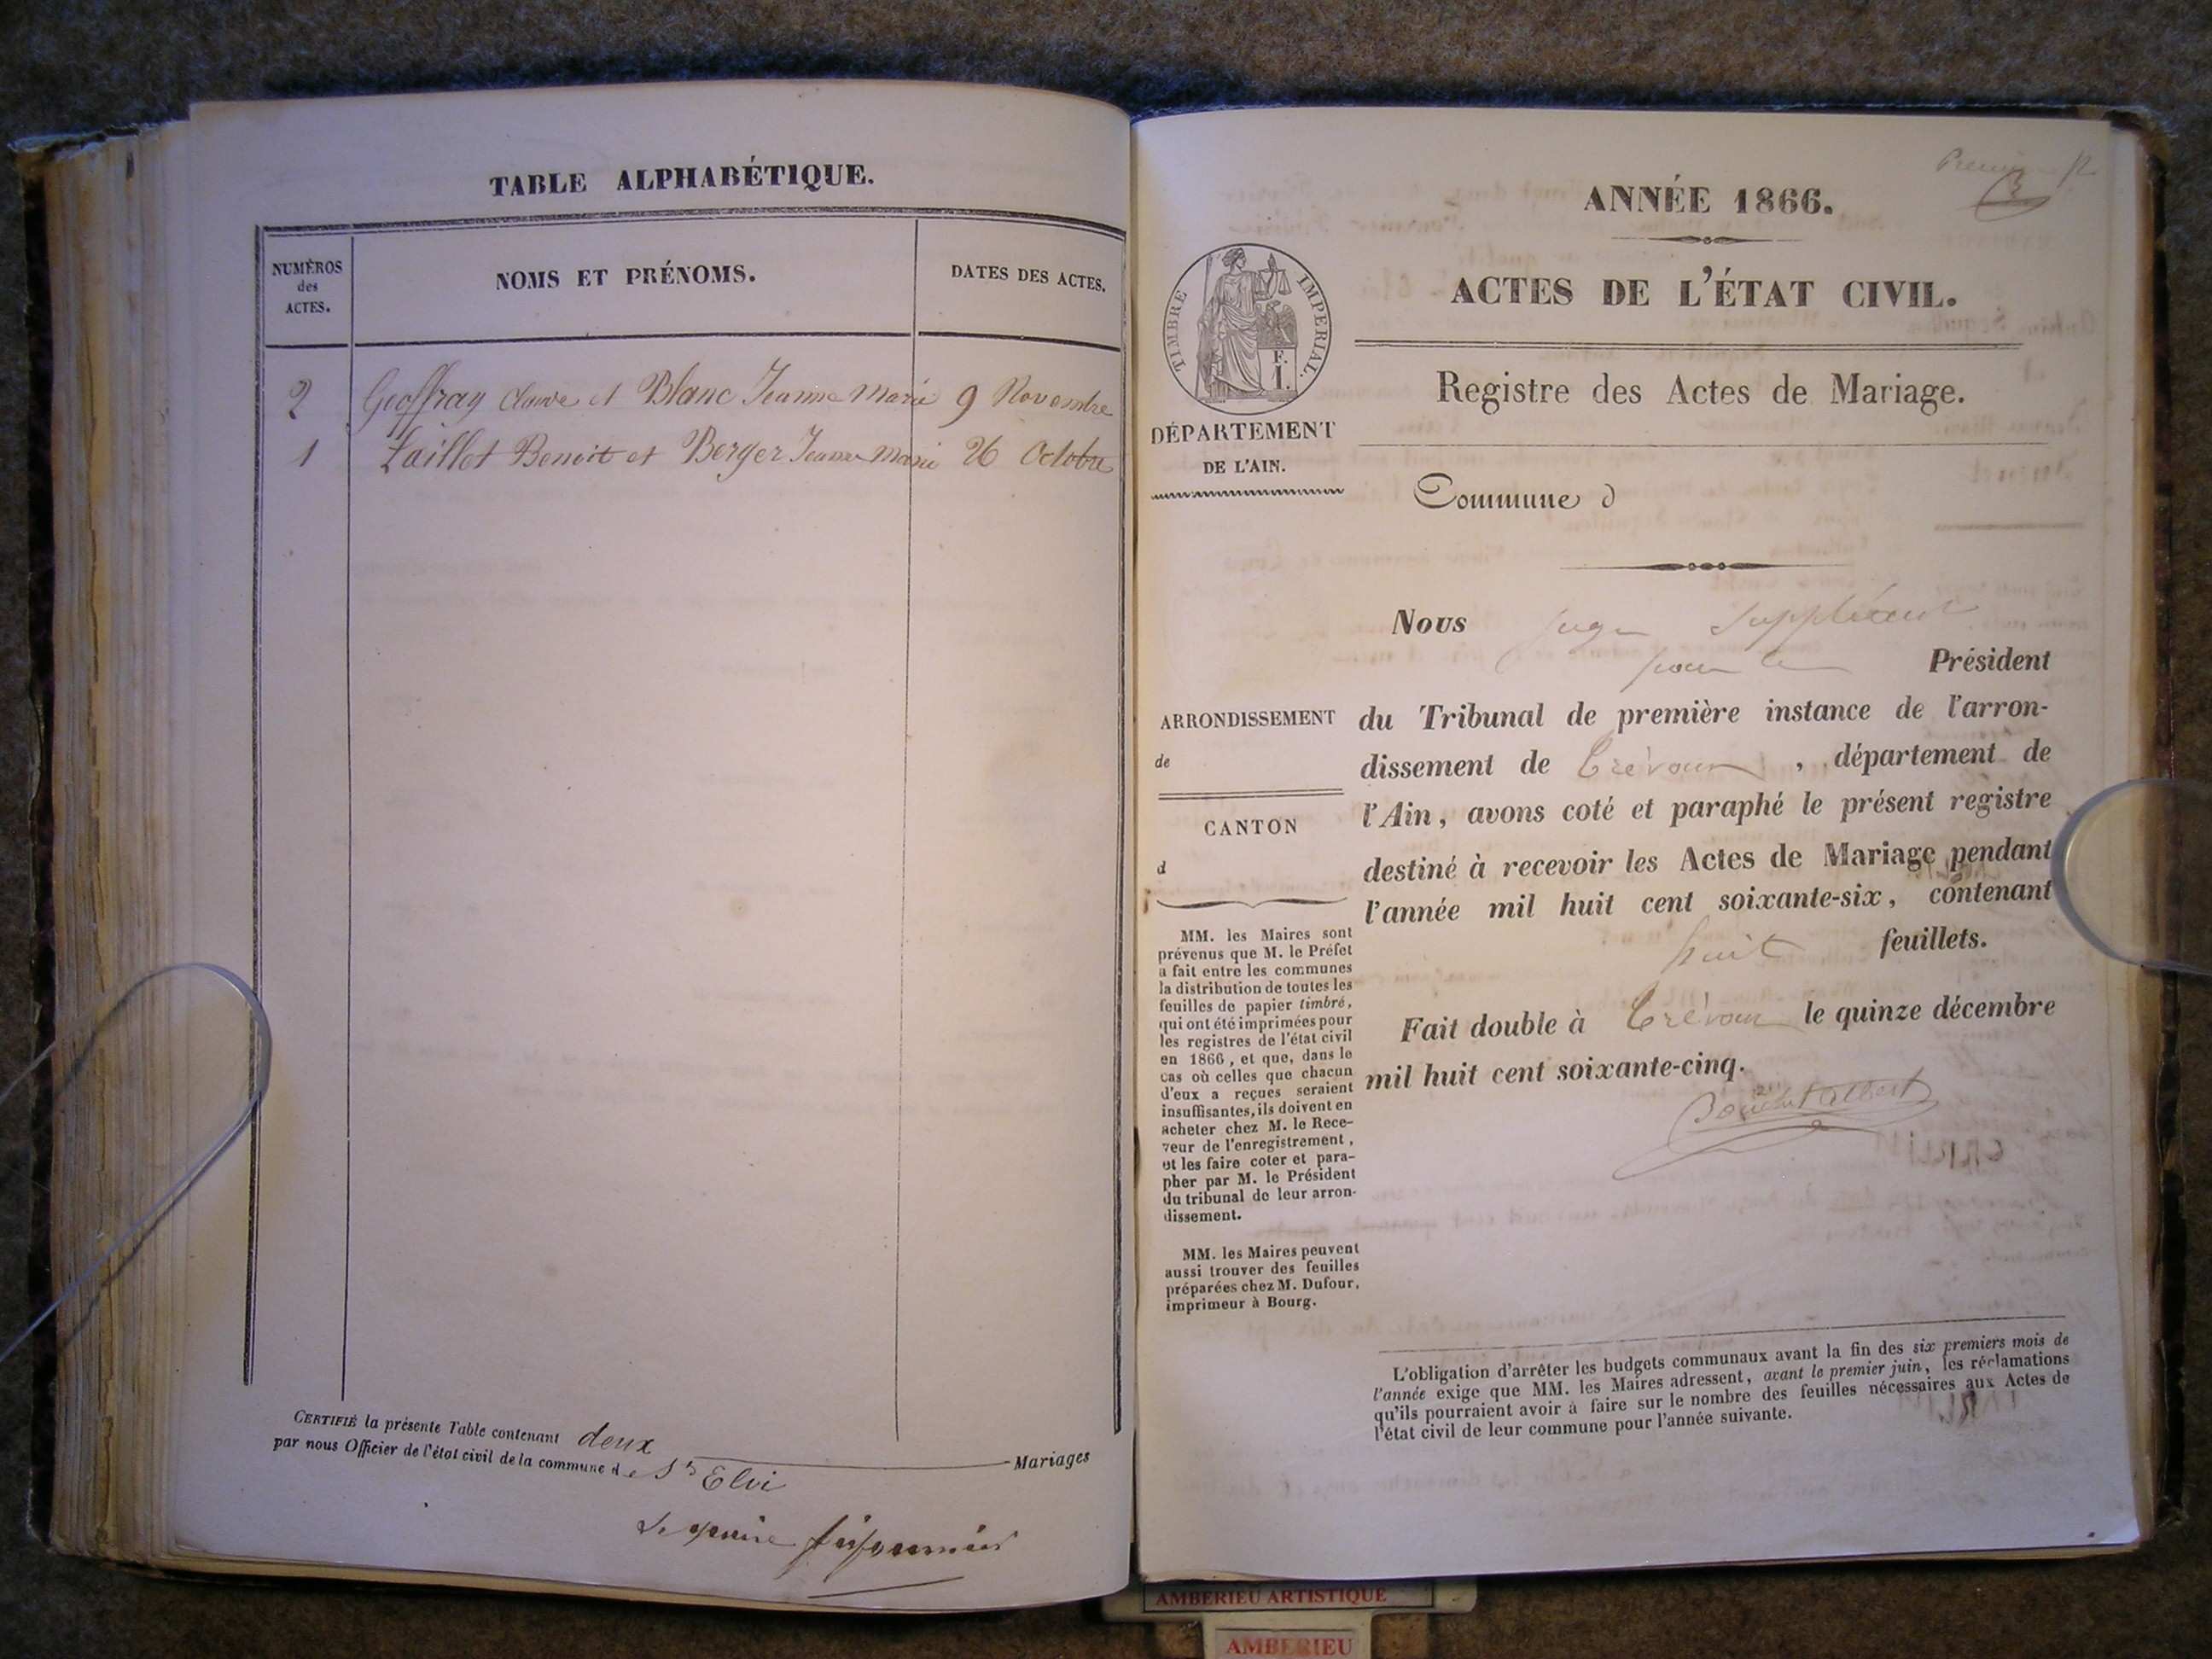 TABLE ALPHABÉTIQUE.
NUMÉROS
des
ACTES.
NOMS ET PRÉNOMS.
DATES DES ACTES.
2 Geoffray Claude et Blanc Jeanne Marie 9 Novembre
1 Laillet Benoit et Berger Jeanne Marie 26 Octobre
CERTIFIÉ la présente Table contenant deux Mariages
par nous Officier de l'état civil de la commune de St Elvi
Le maire
ANNÉE 1866.
ACTES DE L'ÉTAT CIVIL.
Registre des Actes de Mariage.
TIMBRE IMPERIAL.
F.
1.
DÉPARTEMENT
DE L'AIN.
Commune d
ARRONDISSEMENT
de
CANTON
d
MM. les Maires sont
prévenus que M. le Préfet
a fait entre les communes
la distribution de toutes les
feuilles de papier timbré,
qui ont été imprimées pour
les registres de l'état civil
en 1866, et que, dans le
cas où celles que chacun
d'eux a reçues seraient
insuffisantes, ils doivent en
acheter chez M. le Rece-
veur de l'enregistrement,
et les faire coter et para-
pher par M. le Président
du tribunal de leur arron-
dissement.
MM. les Maires peuvent
aussi trouver des feuilles
préparées chez M. Dufour,
imprimeur à Bourg.
Nous juge suppléant
pour le Président
du Tribunal de première instance de l'arron-
dissement de Trévoux, département de
l'Ain, avons coté et paraphé le présent registre
destiné à recevoir les Actes de Mariage pendant
l'année mil huit cent soixante-six, contenant
huit feuillets.
Fait double à Trévoux le quinze décembre
mil huit cent soixante-cinq.
L'obligation d'arrêter les budgets communaux avant la fin des six premiers mois de
l'année exige que MM. les Maires adressent, avant le premier juin, les réclamations
qu'ils pourraient avoir à faire sur le nombre des feuilles nécessaires aux Actes de
l'état civil de leur commune pour l'année suivante.
AMBERIEU ARTISTIQUE
AMBERIEU